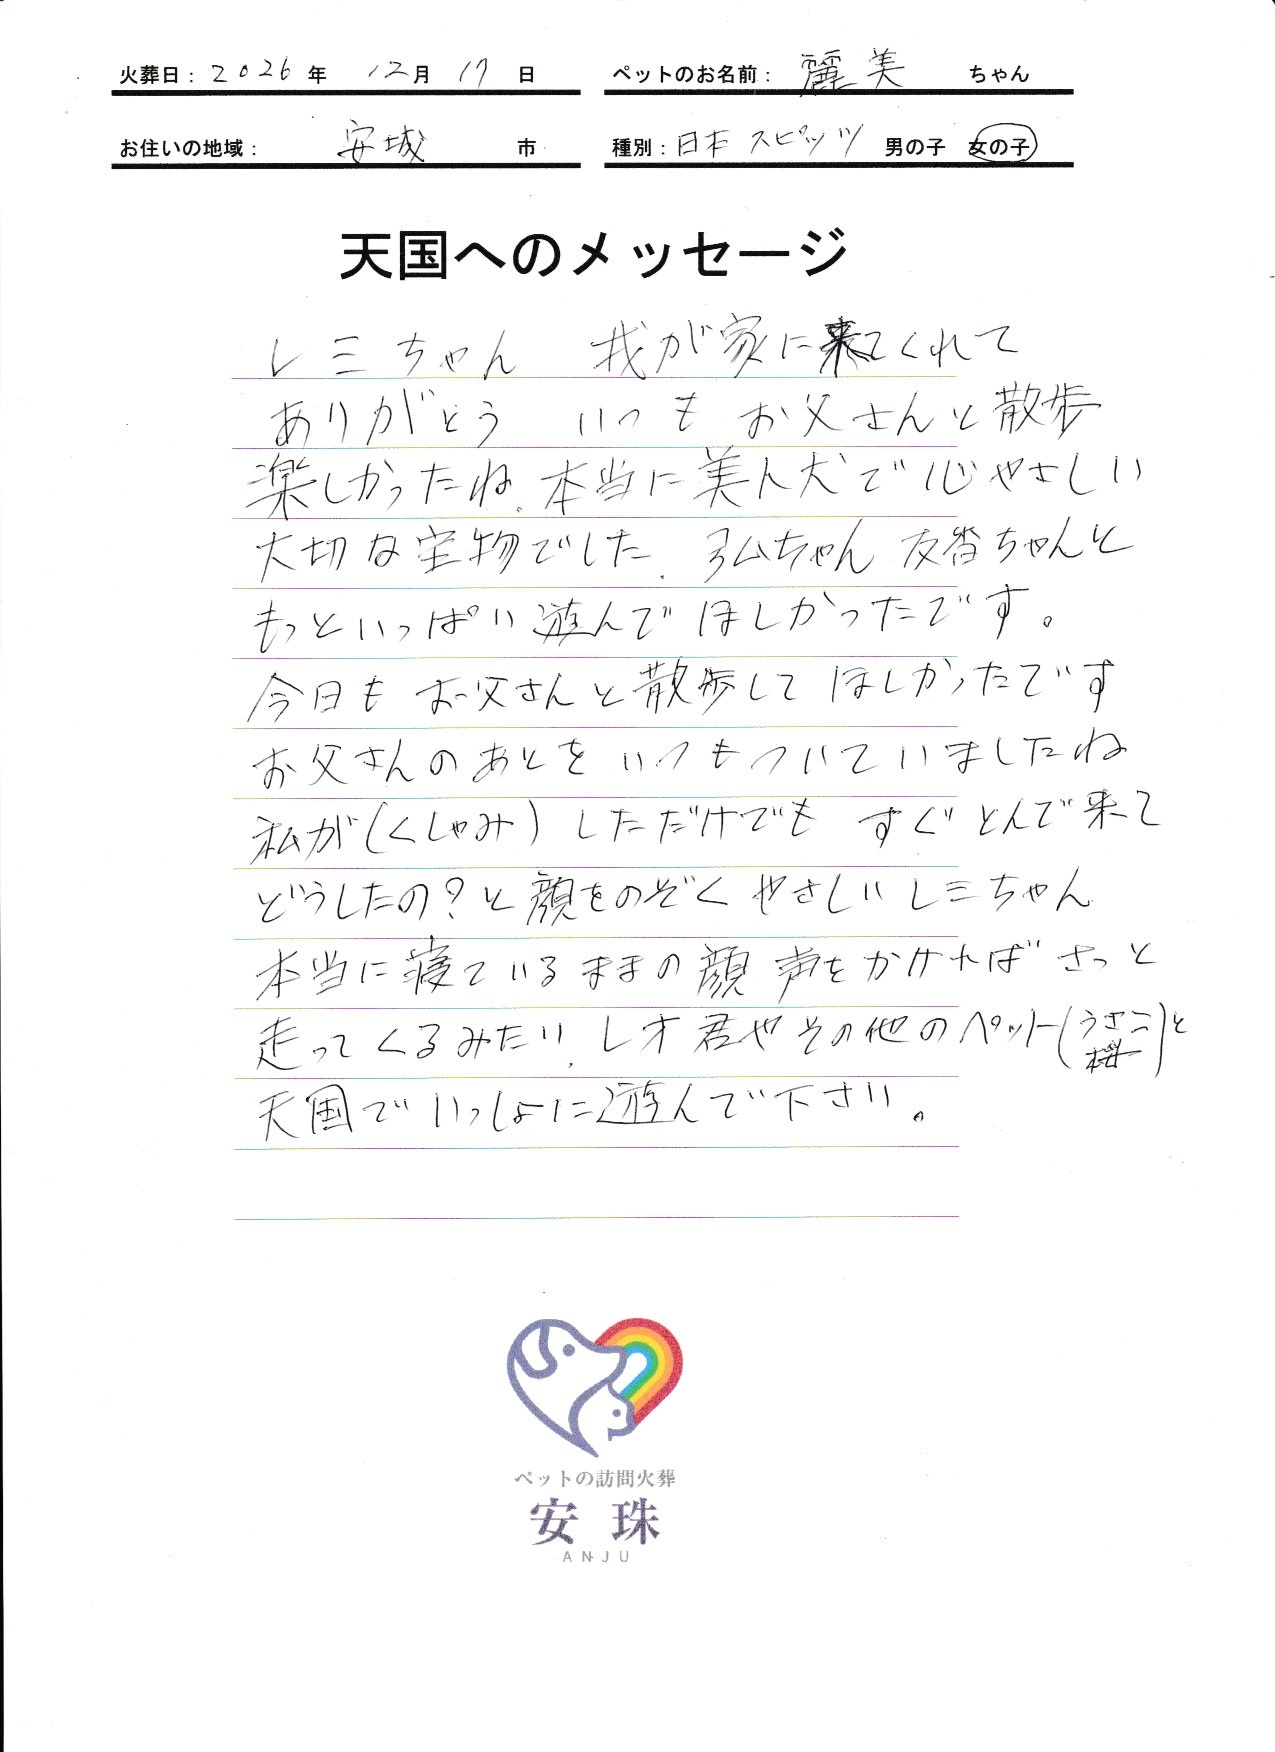 火葬日：2026年 12月 17日
ペットのお名前：麗美 ちゃん
お住いの地域：安城 市
種別：日本スピッツ 男の子 女の子
天国へのメッセージ
レミちゃん 我が家に来てくれて
ありがとう いつも お父さんと散歩
楽しかったね、本当に美人犬で心やさしい
大切な宝物でした、 ちゃん 友香ちゃんと
もっといっぱい遊んでほしかったです。
今日もお父さんと散歩してほしかったです
お父さんのあとをいつもついていましたね
私が(くしゃみ)しただけでも すぐとんで来て
どうしたの？と顔をのぞく やさしいレミちゃん
本当に寝ているままの顔 声をかければ さっと
走ってくるみたい、レオ君やその他のペット(うさこ 桜)と
天国でいっしょに遊んで下さい。
ペットの訪問火葬
安珠
ANJU